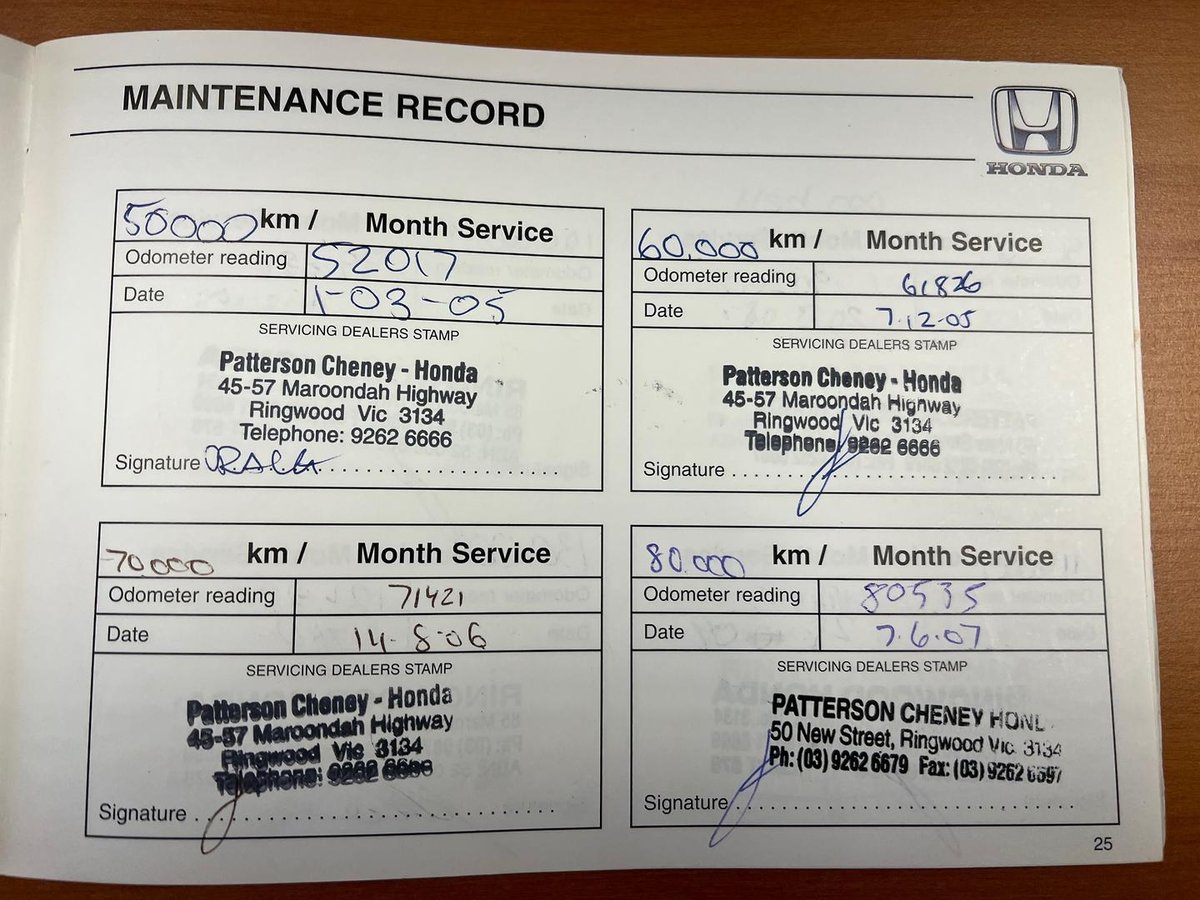 MAINTENANCE RECORD
HONDA
50000 km / Month Service
Odometer reading 52017
Date 1-03-05
SERVICING DEALERS STAMP
Patterson Cheney - Honda
45-57 Maroondah Highway
Ringwood Vic 3134
Telephone: 9262 6666
Signature
60,000 km / Month Service
Odometer reading 61826
Date 7.12.05
SERVICING DEALERS STAMP
Patterson Cheney - Honda
45-57 Maroondah Highway
Ringwood Vic 3134
Telephone: 9262 6666
Signature
70.000 km / Month Service
Odometer reading 71421
Date 14-8-06
SERVICING DEALERS STAMP
Patterson Cheney - Honda
45-57 Maroondah Highway
Ringwood Vic 3134
Telephone: 9262 6666
Signature
80.000 km / Month Service
Odometer reading 80535
Date 7.6.07
SERVICING DEALERS STAMP
PATTERSON CHENEY
50 New Street, Ringwood Vic 3134
Ph: (03) 9262 6679 Fax: (03) 9262 6597
Signature
25